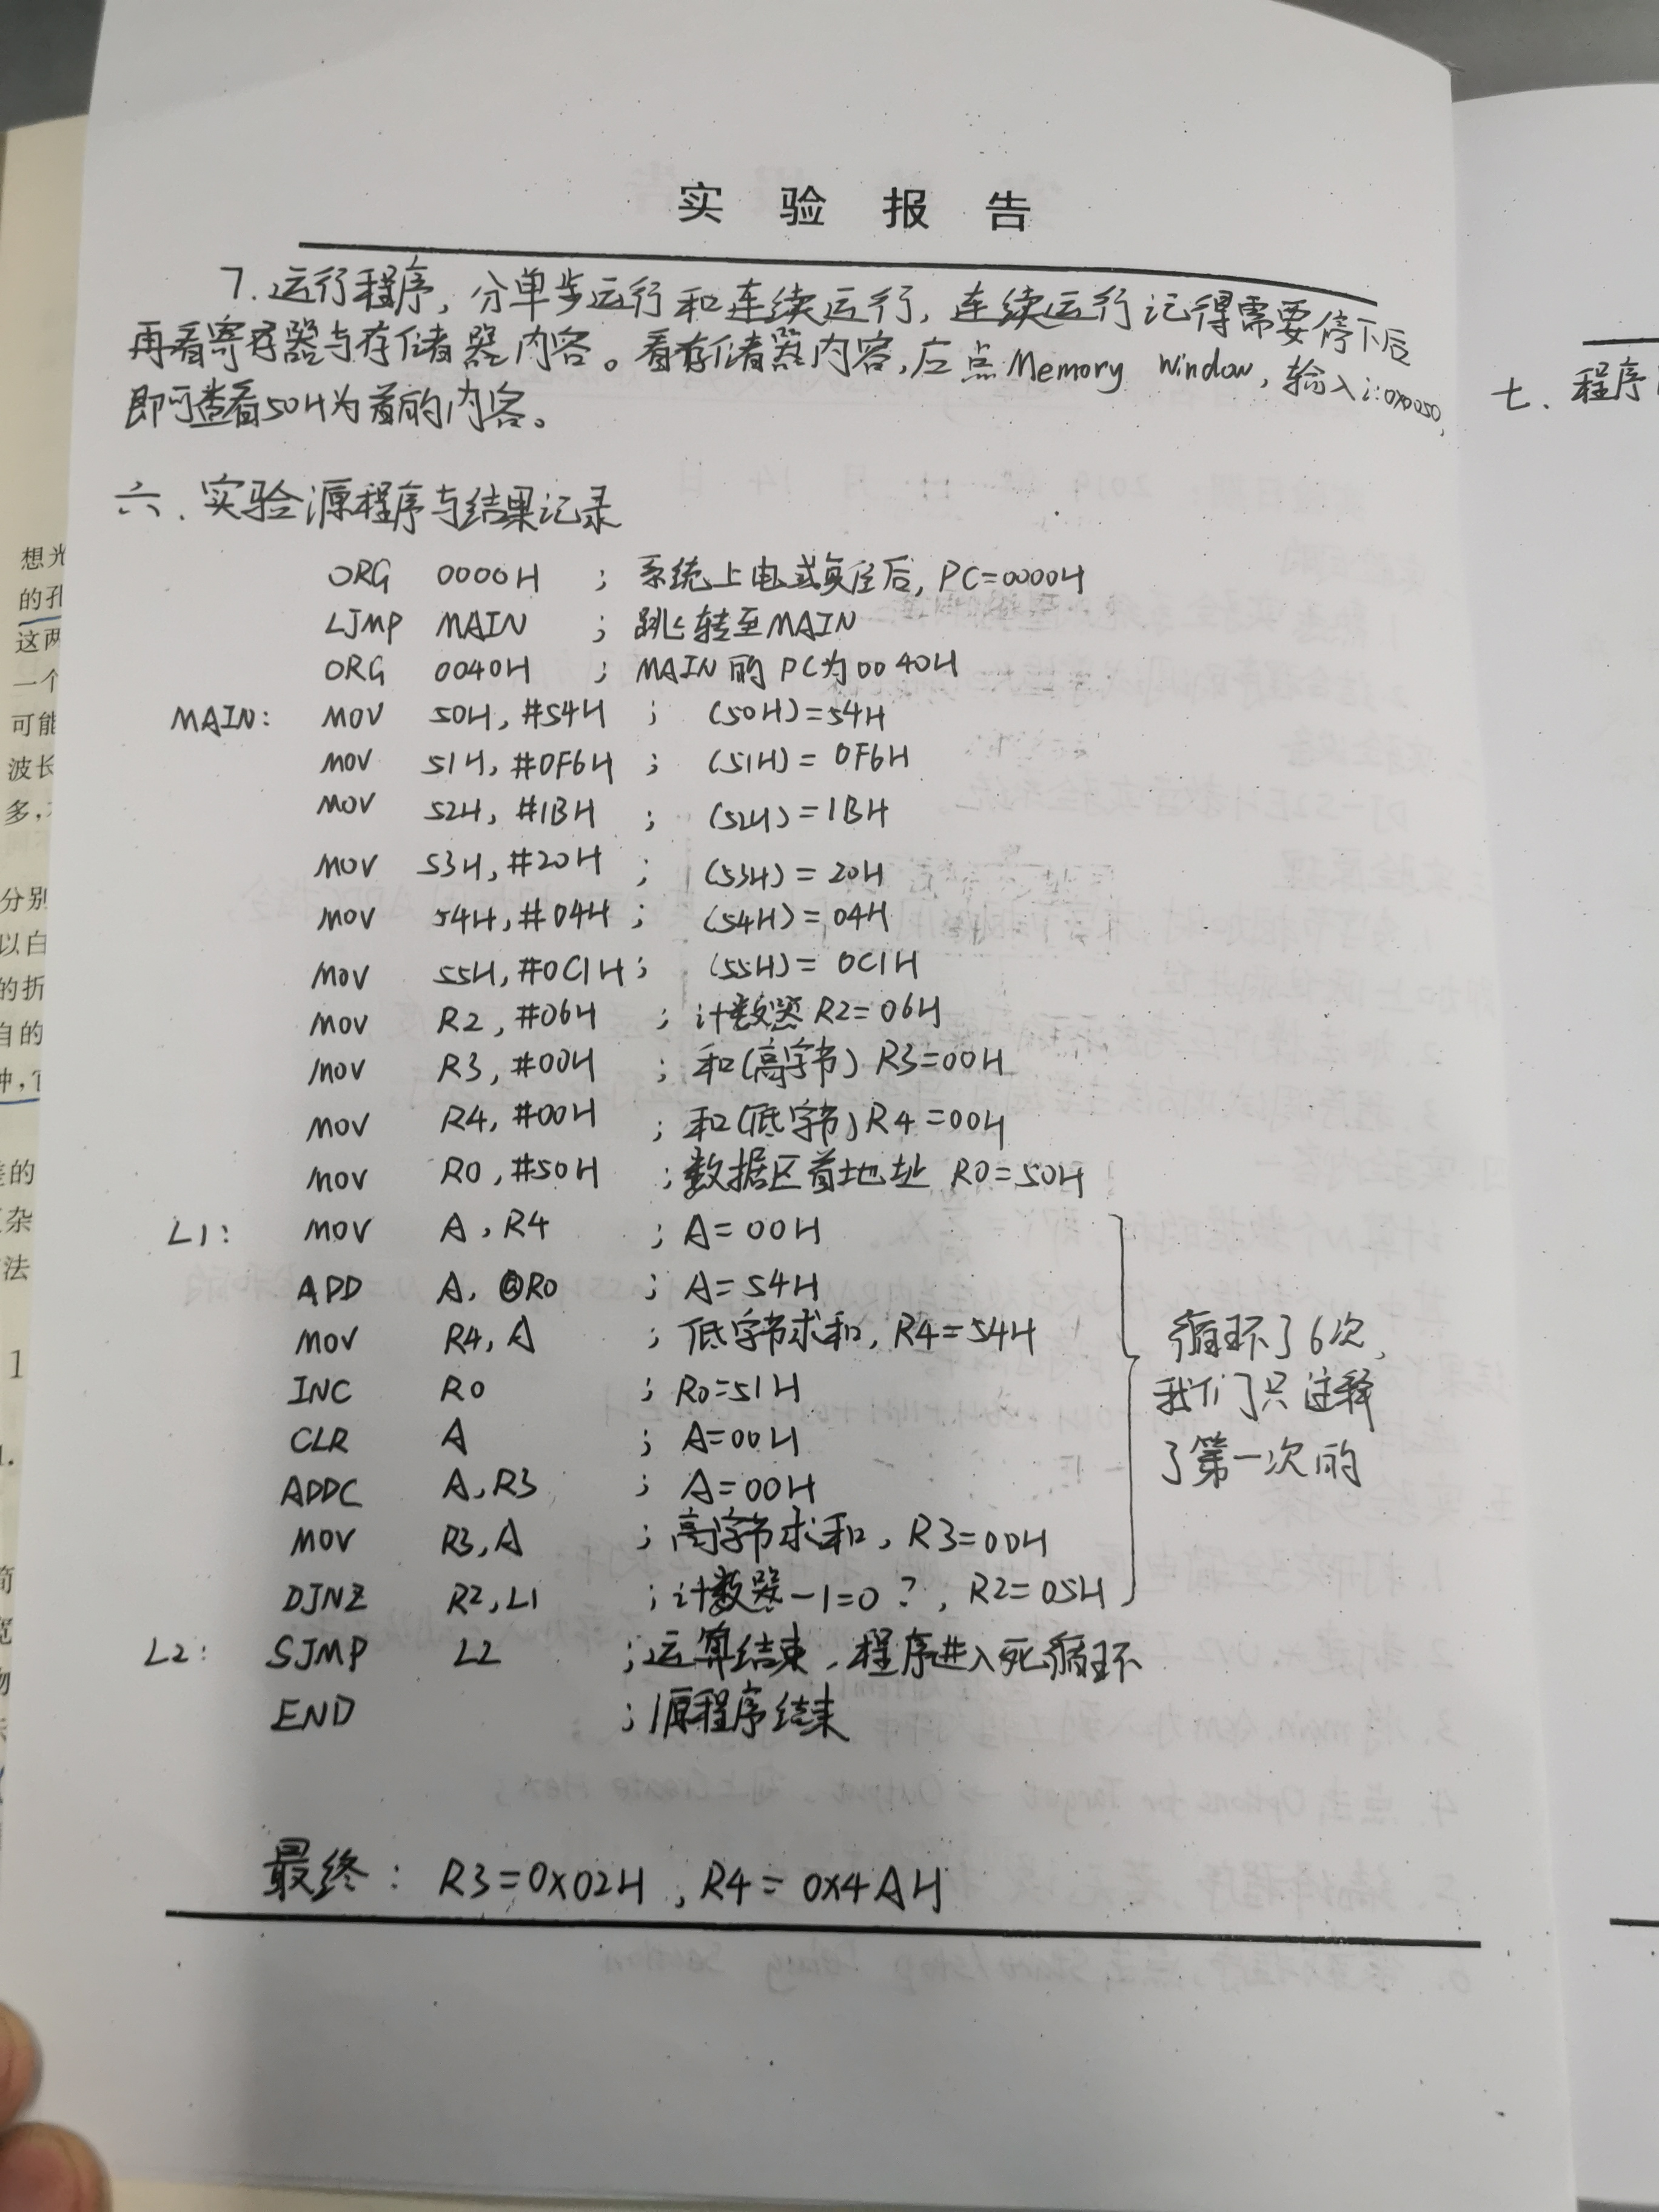 实验报告
7. 运行程序, 分单步运行和连续运行, 连续运行记得需要停下后
再看寄存器与存储器内容。看存储器内容, 应点Memory Window, 输入i:0x0050,
即可查看50H为首的内容。
六、实验源程序与结果记录
ORG 0000H ; 系统上电或复位后, PC=0000H
LJMP MAIN ; 跳转至MAIN
ORG 0040H ; MAIN的PC为0040H
MAIN: MOV 50H, #54H ; (50H)=54H
MOV 51H, #0F6H ; (51H)=0F6H
MOV 52H, #1BH ; (52H)=1BH
MOV 53H, #20H ; (53H)=20H
MOV 54H, #04H ; (54H)=04H
MOV 55H, #0C1H ; (55H)=0C1H
MOV R2, #06H ; 计数器R2=06H
MOV R3, #00H ; 和(高字节) R3=00H
MOV R4, #00H ; 和(低字节) R4=00H
MOV R0, #50H ; 数据区首地址 R0=50H
L1: MOV A, R4 ; A=00H
ADD A, @R0 ; A=54H
MOV R4, A ; 低字节求和, R4=54H
INC R0 ; R0=51H
CLR A ; A=00H
ADDC A, R3 ; A=00H
MOV R3, A ; 高字节求和, R3=00H
DJNZ R2, L1 ; 计数器-1=0?, R2=05H
循环了6次,
我们只注释
了第一次的
L2: SJMP L2 ; 运算结束, 程序进入死循环
END ; 源程序结束
最终: R3=0x02H, R4=0x4AH
七、程序
想光
的孔
这两
一个
可能
波长
多,
分别
以白
的折
自的
种,
差的
复杂
法
1